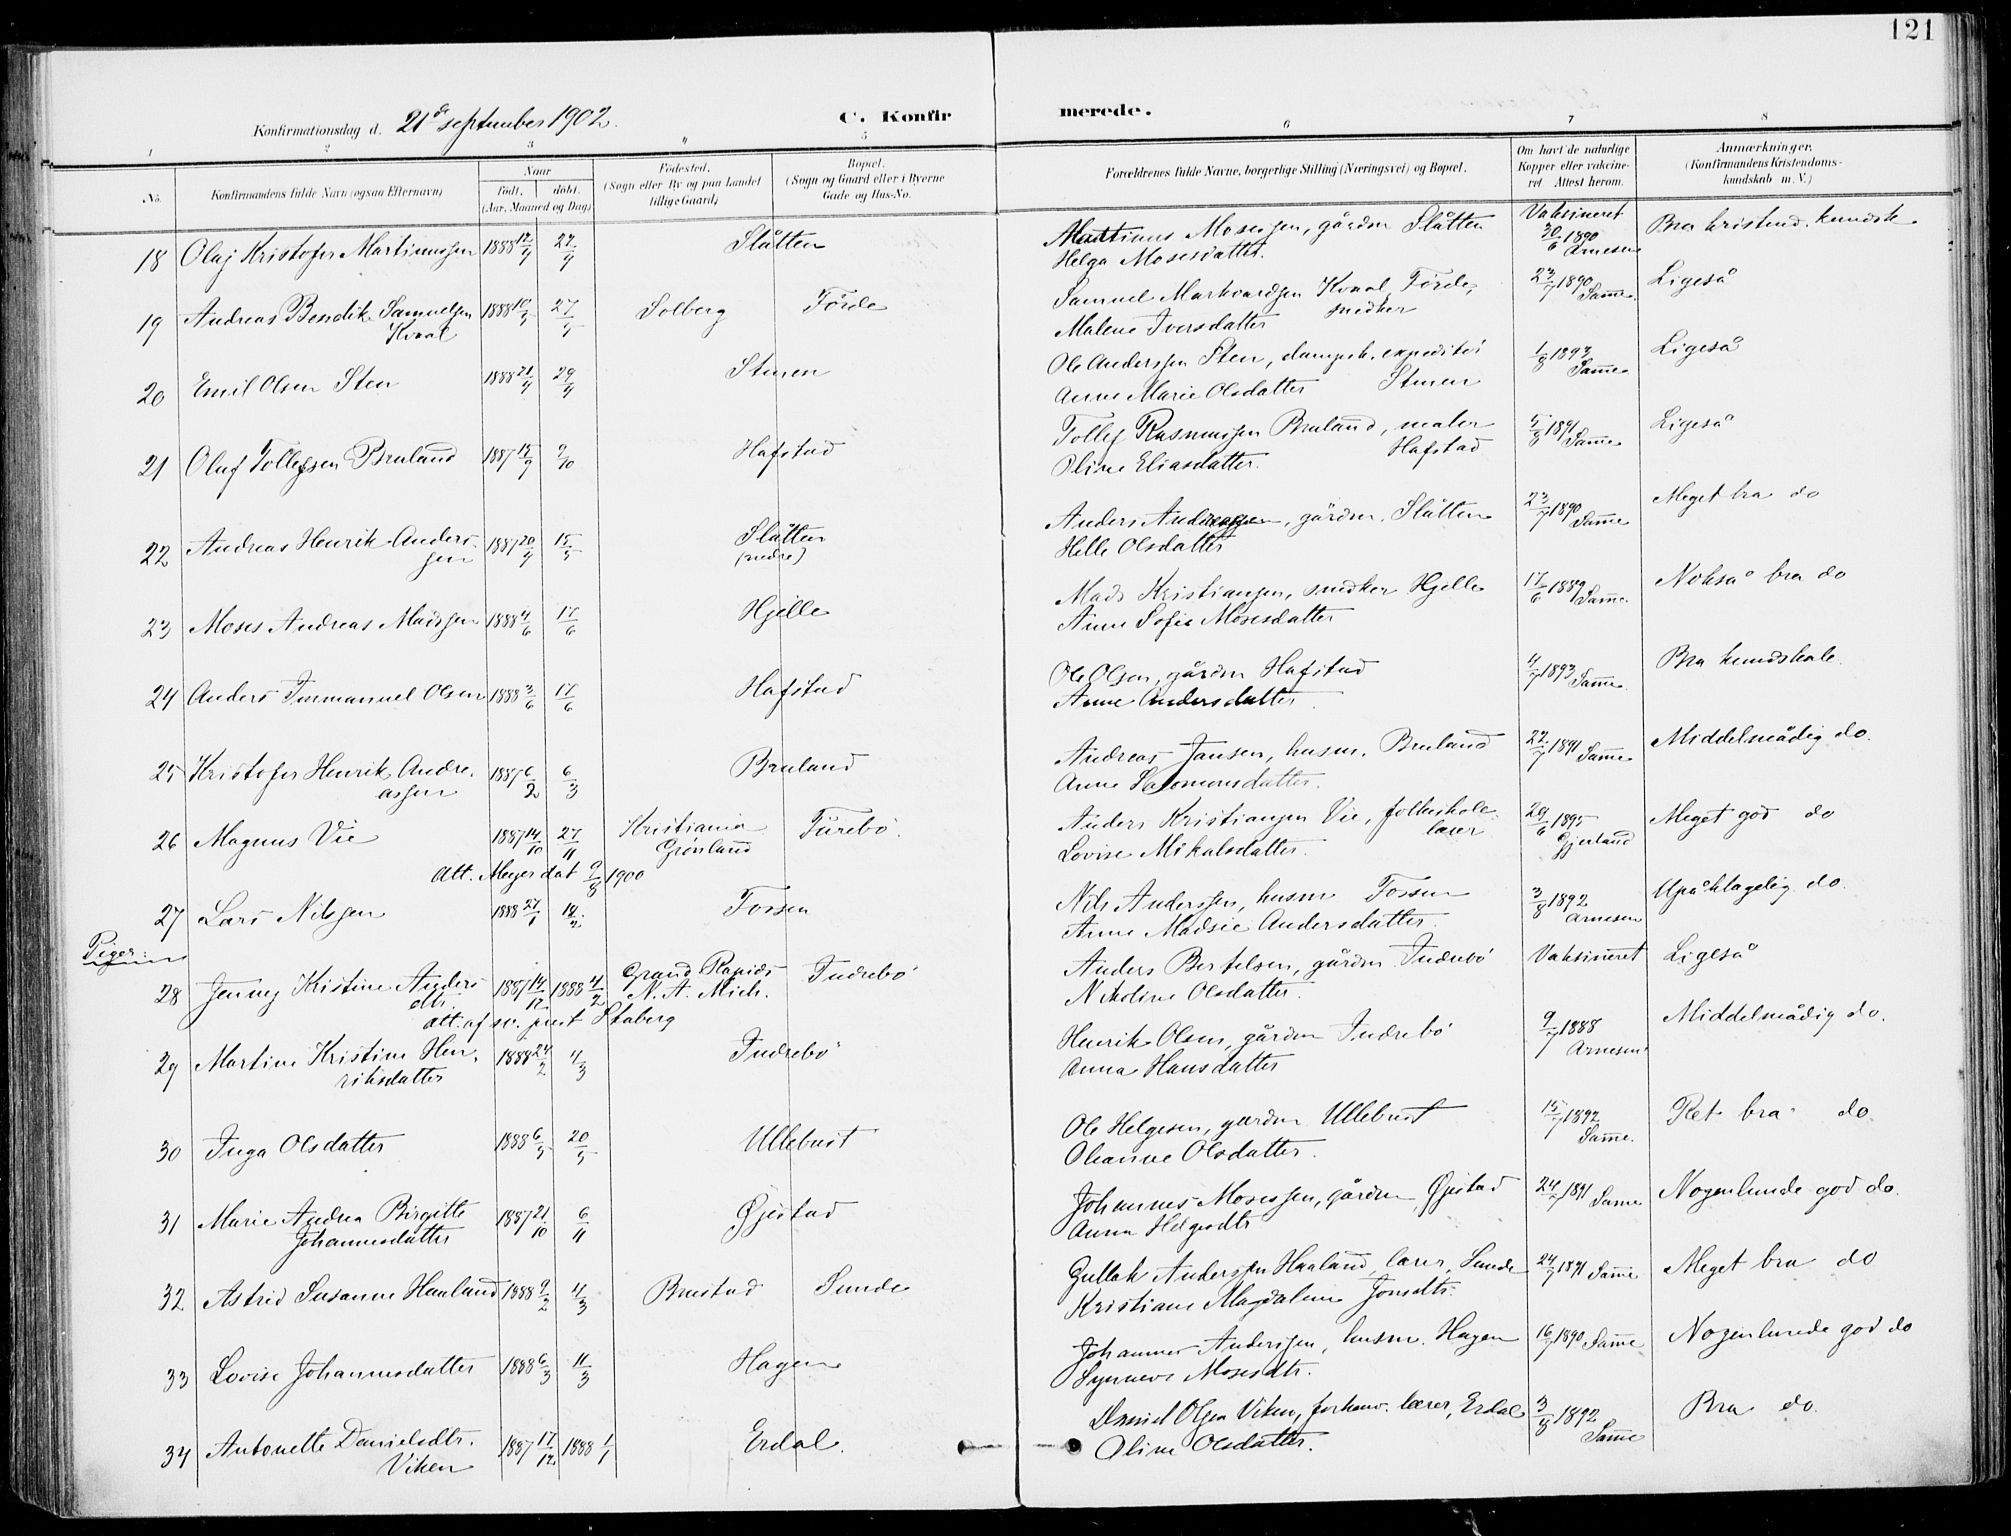 121
Konfirmationsdag d. 21de september 1902.
C. Konfirmerede.
1 2 3 4 5 6 7 8
No.
Konfirmandens fulde Navn (ogsaa Efternavn)
Naar
Født. døbt.
(Aar, Maaned og Dag)
Fødested.
(Sogn eller By og paa Landet
tillige Gaard)
Bopæl.
(Sogn og Gaard eller i Byerne
Gade og Hus-No.
Forældrenes fulde Navne, borgerlige Stilling (Næringsvei) og Bopæl.
Om havt de naturlige
Kopper eller vaksine-
ret Attest herom.
Anmærkninger.
(Konfirmandens Kristendoms-
kundskab m. V.)
18 Olaf Kristofer Martinussen 1888 12/4 22/4 Slåtten Martinus Mosessen, gårdm Slåtten Vaksineret Bra kristend. kundsk
Helga Mosesdatter. 30/6 1890 Arnesen
19 Andreas Bendik Samuelsen 1888 10/5 27/5 Solberg Förde Samuel Markvardsen Kvaal, Förde, 23/7 1890 Same. Ligeså
Kvaal Malene Iversdatter snedker
20 Emil Olsen Sten 1888 21/4 29/4 Stenen Ole Anderssen Sten, dampsk. expeditör 1/8 1893 Same Ligeså
Anne Marie Olsdatter Stenen
21 Oluf Tollefssen Bruland 1887 15/9 9/10 Hafstad Tollef Rasmussen Bruland, maler 5/8 1891 Same Ligeså
Oline Eliasdatter. Hafstad
22 Andreas Henrik Anders- 1887 20/4 15/5 Slåtten Anders Andreassen, gårdm. Slåtten 23/7 1890 Same Meget bra do
sen (nedre) Helle Olsdatter
23 Moses Andreas Madssen 1888 4/6 17/6 Hjelle Mads Kristiansen, snedker Hjelle 17/6 1889 Same. Nokså bra do
Anne Sofie Mosesdatter
24 Anders Immanuel Olsen 1888 3/6 17/6 Hafstad Ole Olsen, gårdm Hafstad 4/7 1893 Same. Bra kundskab.
Anne Andersdatter.
25 Kristofer Henrik Andre- 1887 6/2 6/3 Bruland Andreas Jansen, husm. Bruland 22/7 1891 Same Middelmådig do.
assen Anne Salomonsdatter.
26 Magnus Vie 1887 14/10 27/11 Kristiania Farebö. Anders Kristiansen Vie, folkeskole- 29/6 1895 Meget god do
Grønland lærer Gjerland
Att. Meyer dat 9/8 1900 Lovise Mikalsdatter.
27 Lars Nilssen 1888 27/1 12/2 Fossen Nils Anderssen, husm Fossen 3/8 1892 Upåklagelig do.
Anne Madsie Andersdatter. Arnesen
Piger:
28 Jenny Kristine Anders- 1887 14/12 1888 4/2 Grand Rapids Indrebö Anders Bertelsen, gårdm Indrebö Vaksineret Ligeså
dtr. N. A. Mich. Nikoline Olsdatter.
att. af sv. prest Staberg
29 Martine Kristine Hen- 1888 24/2 4/3 Indrebö Henrik Olsen, gårdm Indrebö 9/7 1888 Middelmådig do.
riksdatter Anna Hansdatter Arnesen
30 Inga Olsdatter 1888 6/5 20/5 Ullebust Ole Helgesen, gardm Ullebust 15/7 1892 Ret bra do
Oleanne Olsdatter. Same.
31 Marie Andrea Birgitte 1887 21/10 6/11 Øjestad Johannes Mosessen, gårdm Øjestad 24/7 1891 Same Nogenlunde god do.
Johannesdatter Anna Helgesdtr
32 Astrid Susanne Haaland 1888 9/2 4/3 Brustad Sunde Gullak Anderssen Haaland, lærer, Sunde 24/7 1891 Same Meget bra do
Kristiane Magdalene Jonsdtr.
33 Lovise Johannesdatter 1888 6/3 11/3 Hagen Johannes Anderssen, husm. Hagen 16/7 1890 Same Nogenlunde god do
Synneve Mosesdtr.
34 Antonette Danielsdtr. 1887 17/12 1888 1/1 Erdal. Daniel Olsen Viken, forhenv. lærer, Erdal 3/8 1892 Bra do.
Viken Oline Olsdatter. Same